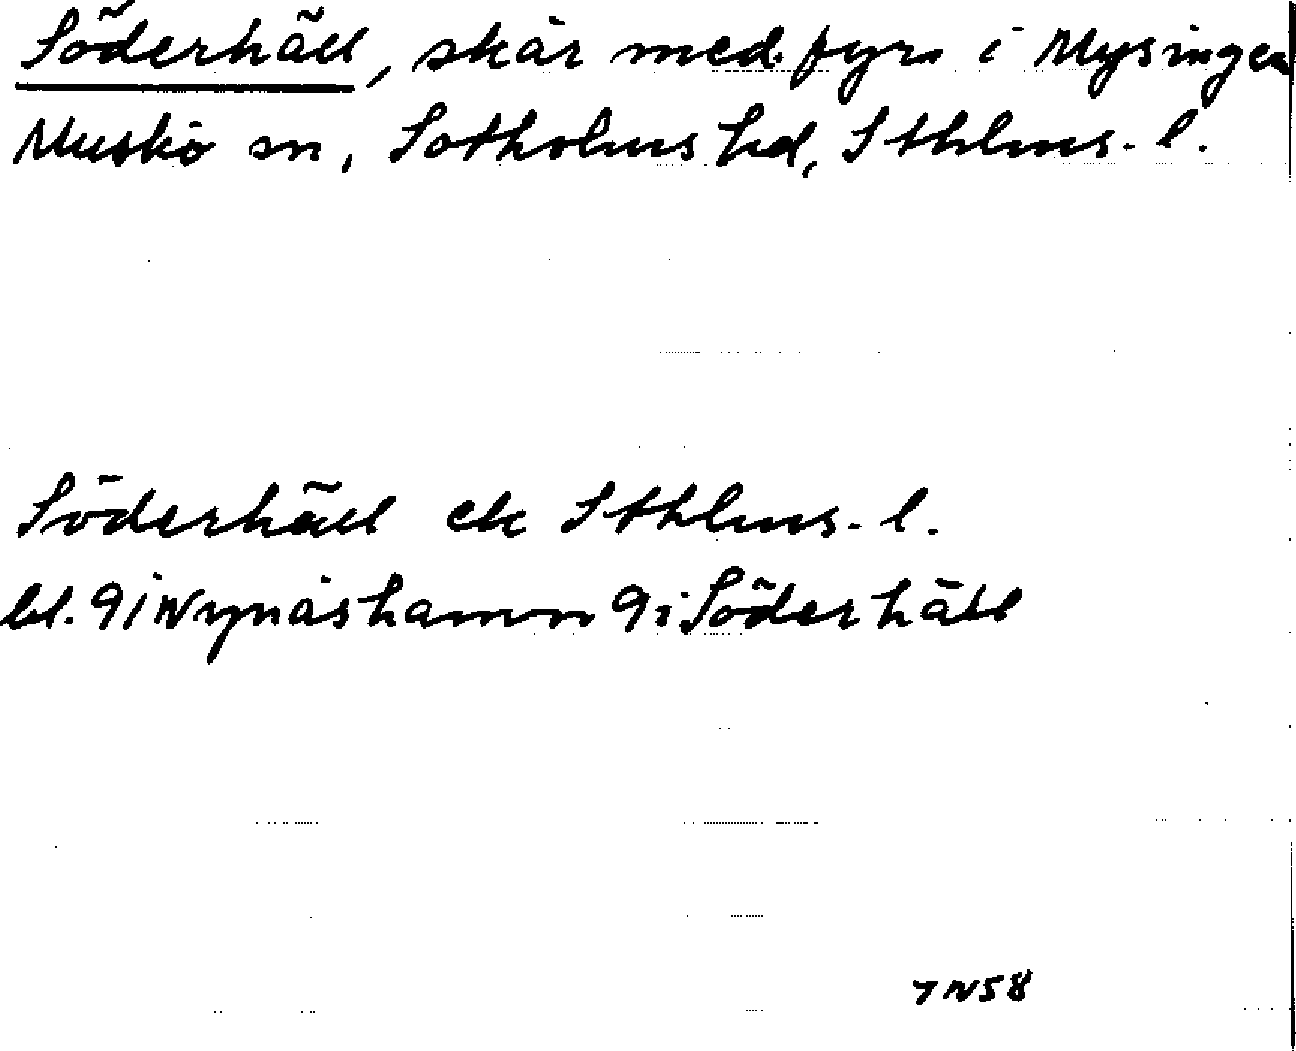 Söderhäll, skär med fyr i Mysingen
Muskö sn, Sotholms hd, Sthlms. l.
Söderhäll ek Sthlms. l.
bl. 9i Nynäshamn 9i Söderhäll
7N58